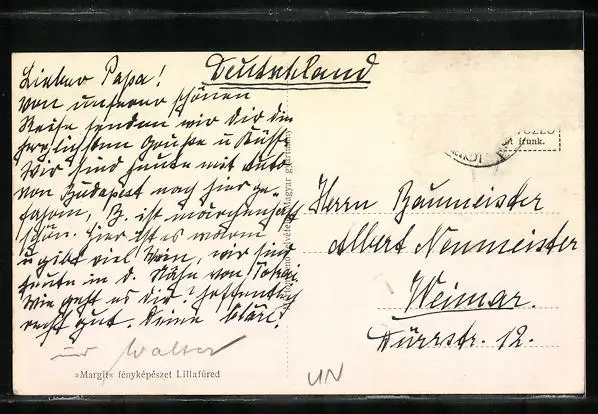 Deutschland
Lieber Papa!
Von unserer schönen
Reise senden wir Dir die
herzlichsten Grüße u Küsse
Wir sind heute mit Auto
von Budapest nach hier ge-
fahren, B. ist märchenhaft
schön. Hier ist es warm
u gibt viel Wein, wir sind
heute in d. Nähe von Tokai.
Wie geht es Dir? Hoffentlich
recht gut. Deine Cläre.
und Walter
»Margit« fényképészet Lillafüred
magyar gyártmány
t írunk.
Herrn Baumeister
Albert Neumeister
Weimar.
Dürrstr. 12.
UN